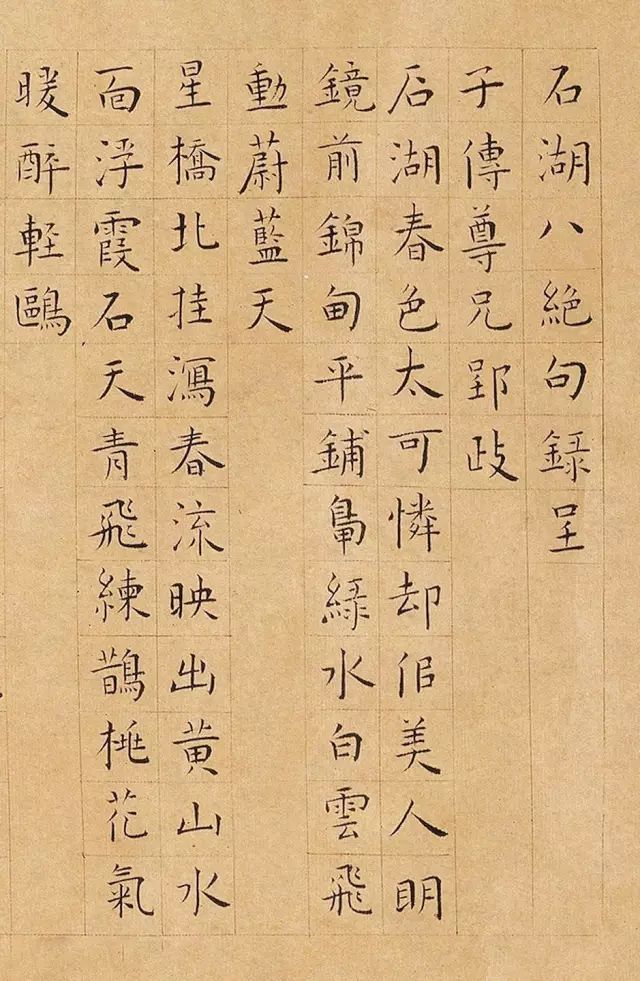 石湖八絕句録呈
子傳尊兄郢政
石湖春色太可憐却佀美人眀
鏡前錦甸平鋪鳧綠水白雲飛
動蔚藍天
星橋北挂瀉春流映出黄山水
面浮霞石天青飛練鵲桃花氣
暖醉輕鷗